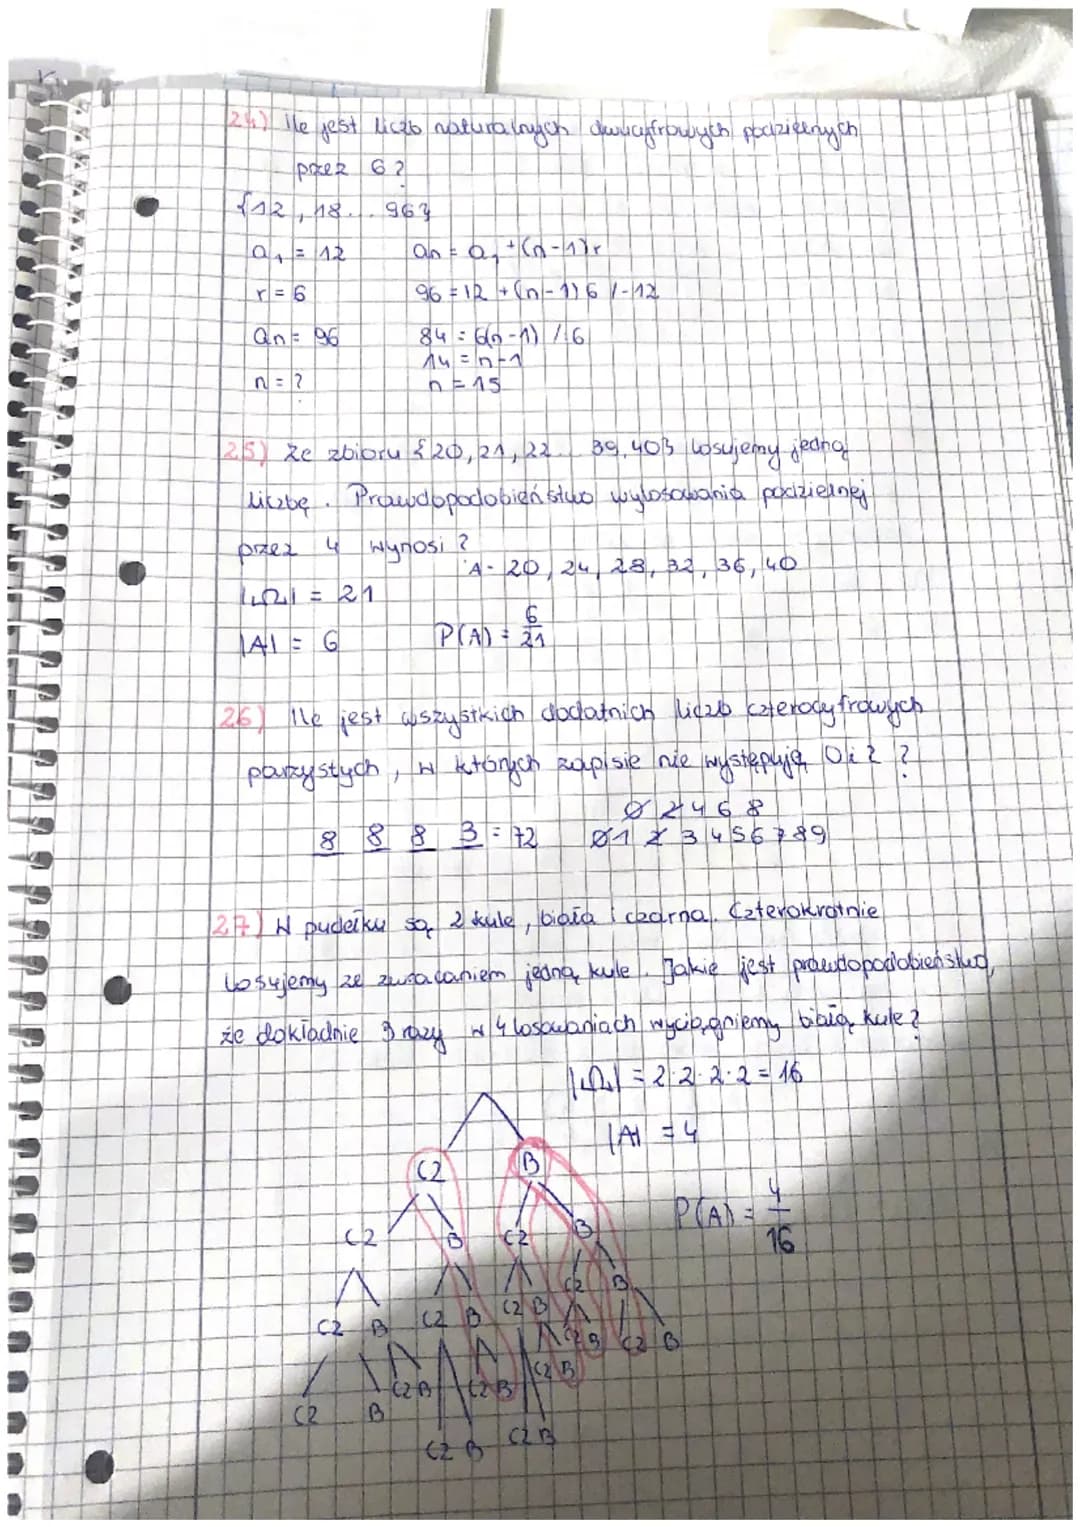 24) Ile jest liczb naturalnych dwucyfrowych podzielnych
przez 6?
{12, 18... 96}
a₁ = 12 an = a₁ + (n-1)r
r = 6 96 = 12 + (n-1)6 /-12
an = 96 84 = 6(n-1) /:6
14 = n-1
n = ? n = 15
25) Ze zbioru {20, 21, 22... 39, 40} losujemy jedną
liczbę. Prawdopodobieństwo wylosowania podzielnej
przez 4 wynosi?
A- 20, 24, 28, 32, 36, 40
|Ω| = 21
|A| = 6 P(A) = 6/21
26) Ile jest wszystkich dodatnich liczb czterocyfrowych
parzystych, w których zapisie nie występują 0 i 2 ?
0 2 4 6 8
8 8 8 3 = 72 0 1 2 3 4 5 6 7 8 9
27) W pudełku są 2 kule, biała i czarna. Czterokrotnie
losujemy ze zwracaniem jedną kule. Jakie jest prawdopodobieństwo,
że dokładnie 3 razy w 4 losowaniach wyciągniemy białą kule?
|Ω| = 2·2·2·2 = 16
|A| = 4
CZ B
P(A) = 4/16
CZ B CZ B
CZ B CZ B CZ B CZ B
CZ B CZ B CZ B CZ B
CZ B CZ B
CZ B CZ B